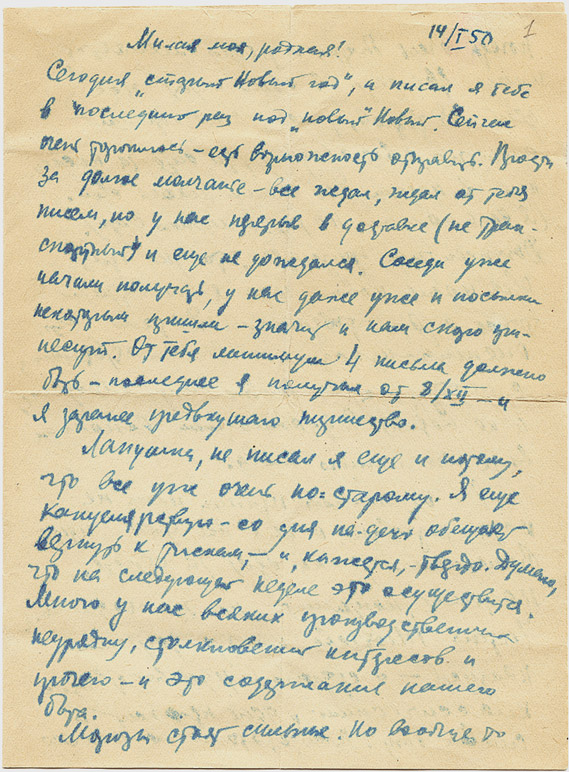 14/I 50 1
Милая моя, родная!
Сегодня "старый Новый год", и писал я тебе
в последний раз под "новый" Новый. Сейчас
очень тороплюсь – есть возможность отправить. Прости
за долгое молчание – все ждал, ждал от тебя
писем, но у нас перерыв в доставке (не тран-
спортный) и еще не дождался. Соседи уже
начали получать, у нас даже уже и посылки
некоторым пришли – значит и нам скоро при-
несут. От тебя минимум 4 письма должно
быть – последнее я получил от 8/XII – и
я заранее предвкушаю пиршество.
Лапушка, не писал я еще и потому,
что все уж очень по-старому. Я еще
канцелярствую – со дня на день обещают
вернуть к – и, кажется, – твердо. Думаю,
что на следующей неделе это осуществится.
Много у нас всяких производственных
неурядиц, столкновений интересов и
прочего – и это содержание нашего
быта.
Морозы стоят сильные. Но вообще то